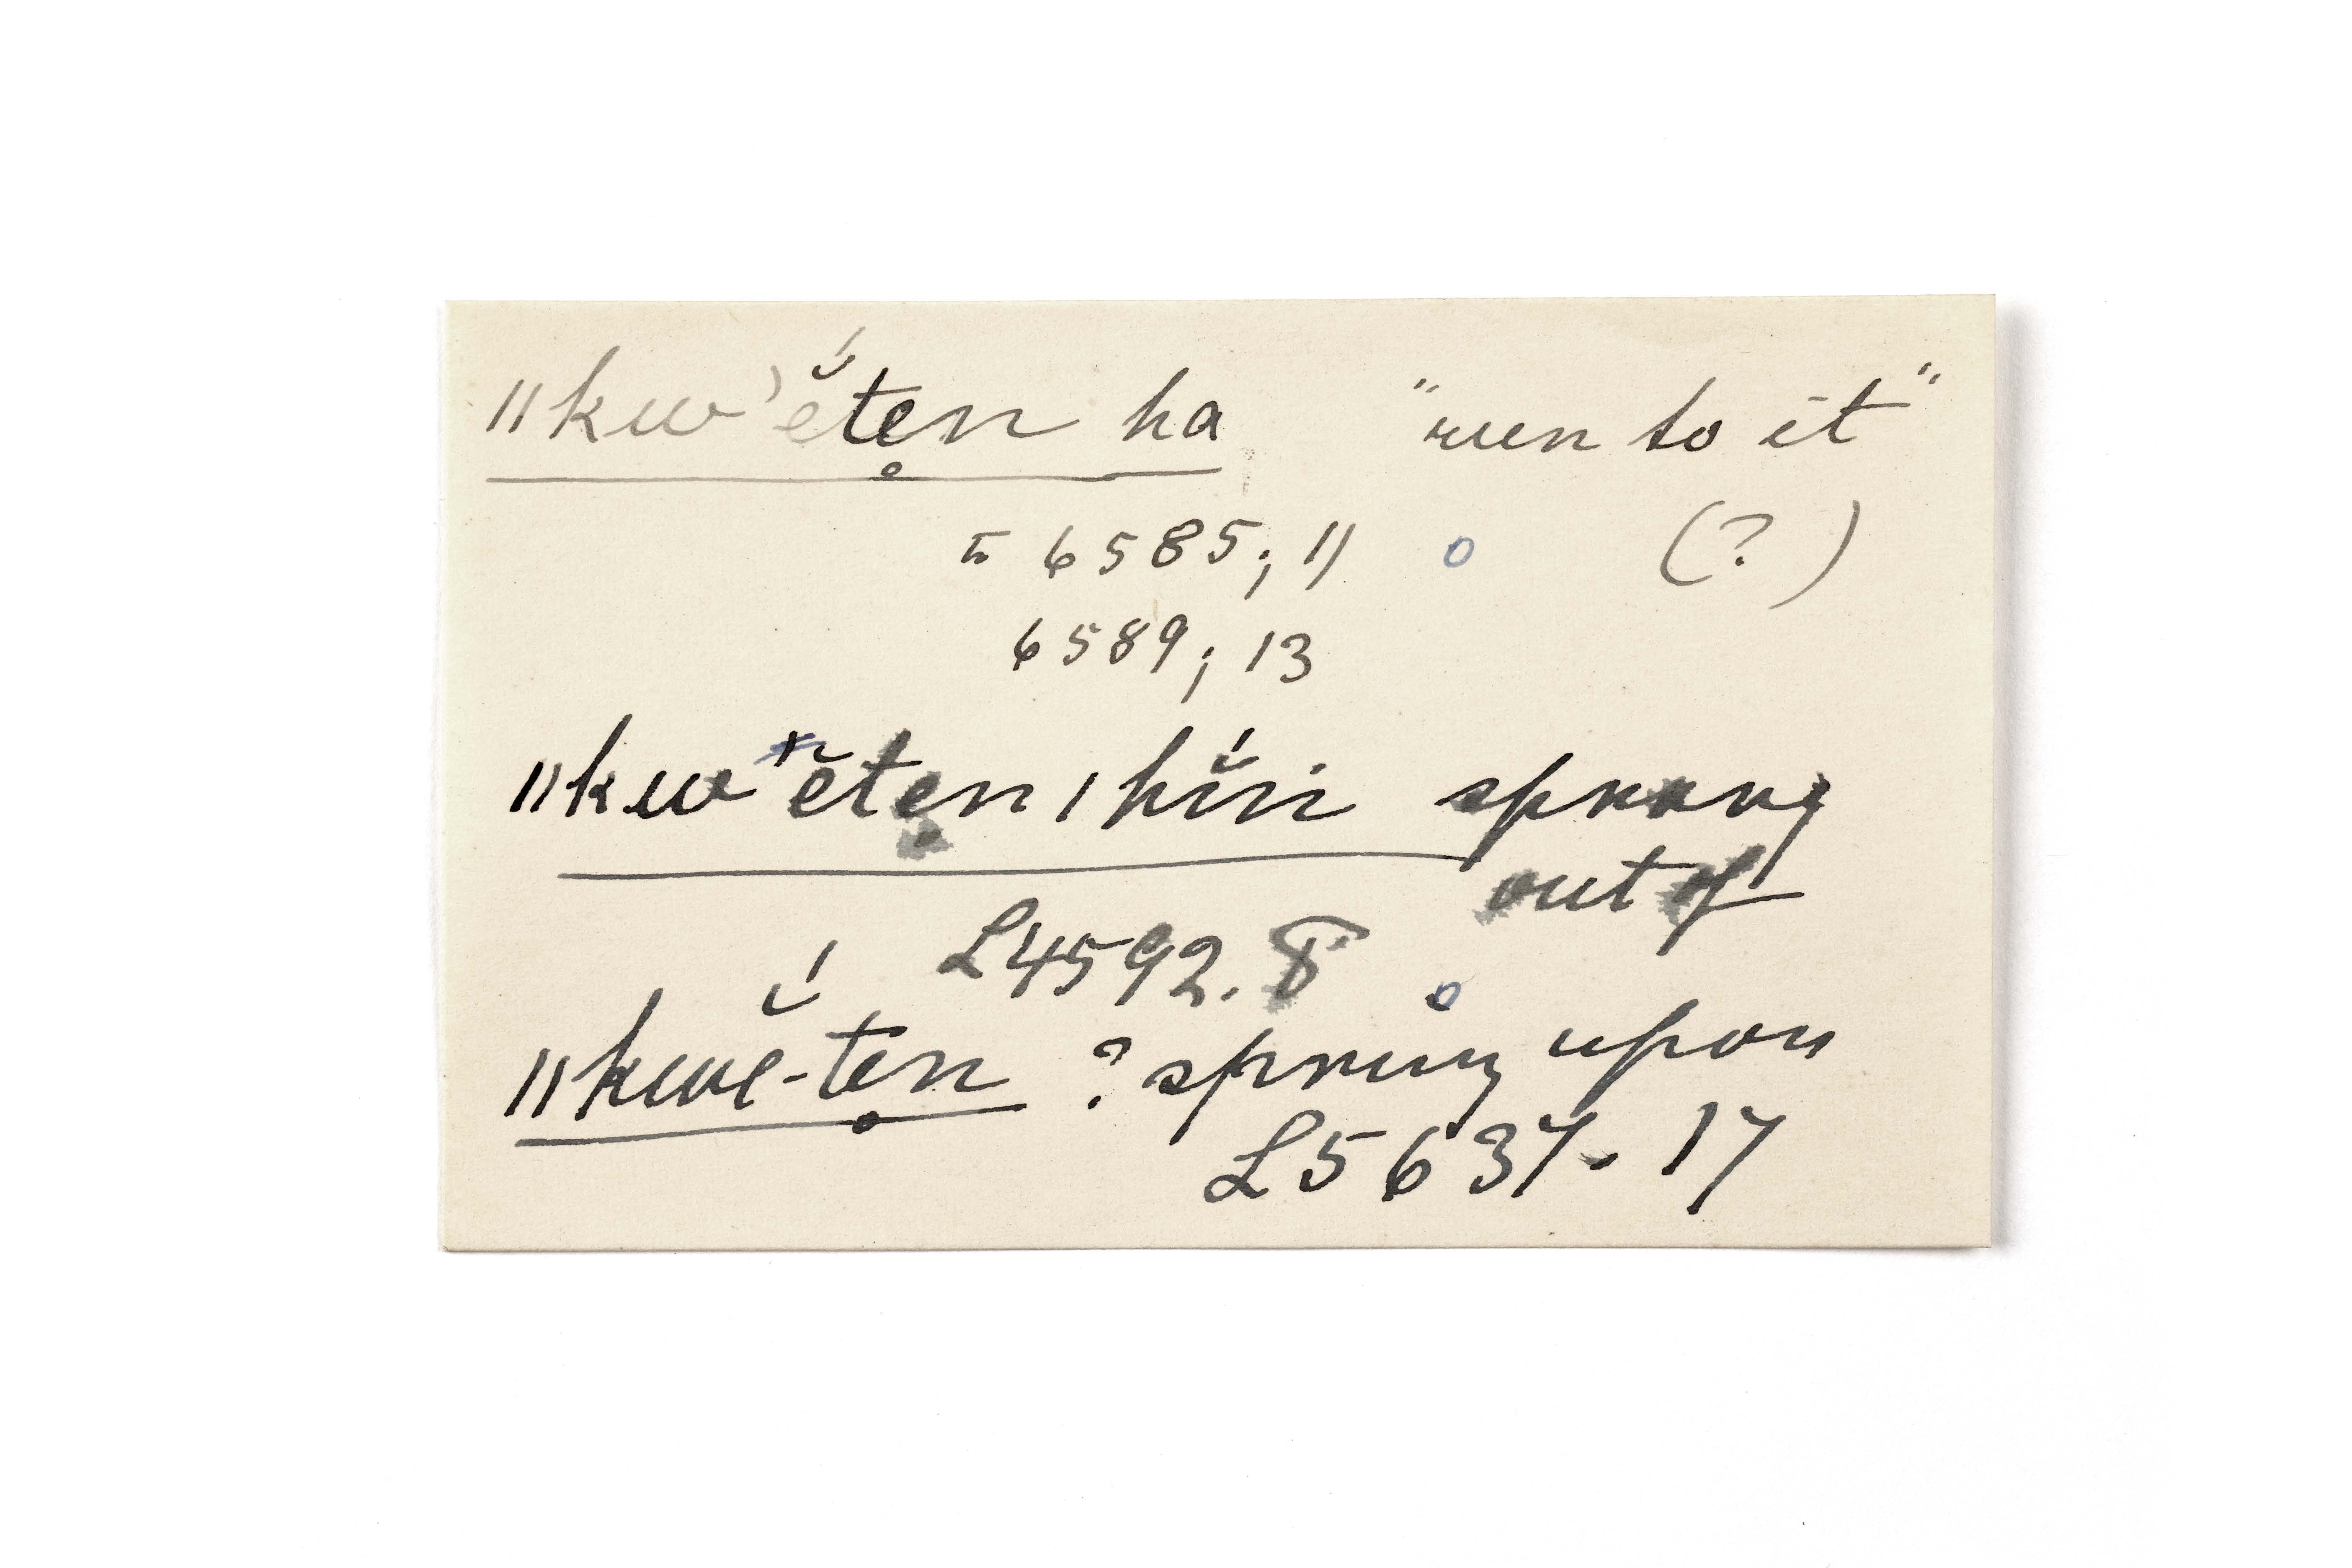 ǁkwʼĕ́te̥n ha "run to it"
⊼ 6585; 11 o (?)
6589; 13
ǁkwʼĕte̥nǀhĭ́n sprang
out of
L4592.8 o
ǁkwĕ́-te̥n ? spring upon
L5637. 17